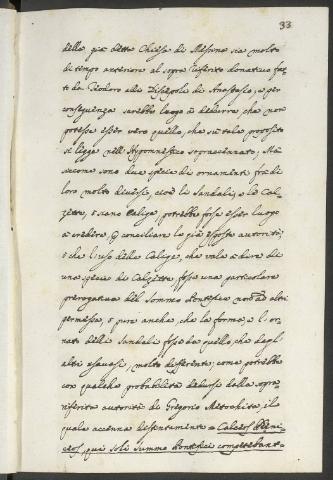 33
della già detta Chiesa di Messina sia molto
di tempo anteriore al sopra riferito donativo fat-
to da Teodoro alla Discepola di Anastasio, e per
conseguenza sarebbe luogo à dedurre, che non
potesse esser vero quello, che su tale proposito
si legge nell'Hypomnestico sopraccennato; Mà
siccome sono due specie di ornamenti frà di
loro molto diverse, cioè li Sandali, e le Cal-
zette, o siano Calige, potrebbe forse esser luogo
à credere, e conciliare le già esposte autorità;
e che l'uso delle Calige, che vale à dire di
una specie di Calzette, fosse una particolare
prerogativa del Sommo Pontefice non à altri
permessa, e pure anche, che la forma, e l'or-
nato delli Sandali fosse da quello, che dagl'
altri usavasi, molto differente; come potrebbe
con qualche probabilità dedursi dalla sopra-
riferita autorità di Gregorio Metochita, il
quale accenna distintamente = Calceos
ceos, qui soli summo Pontifici competebant =